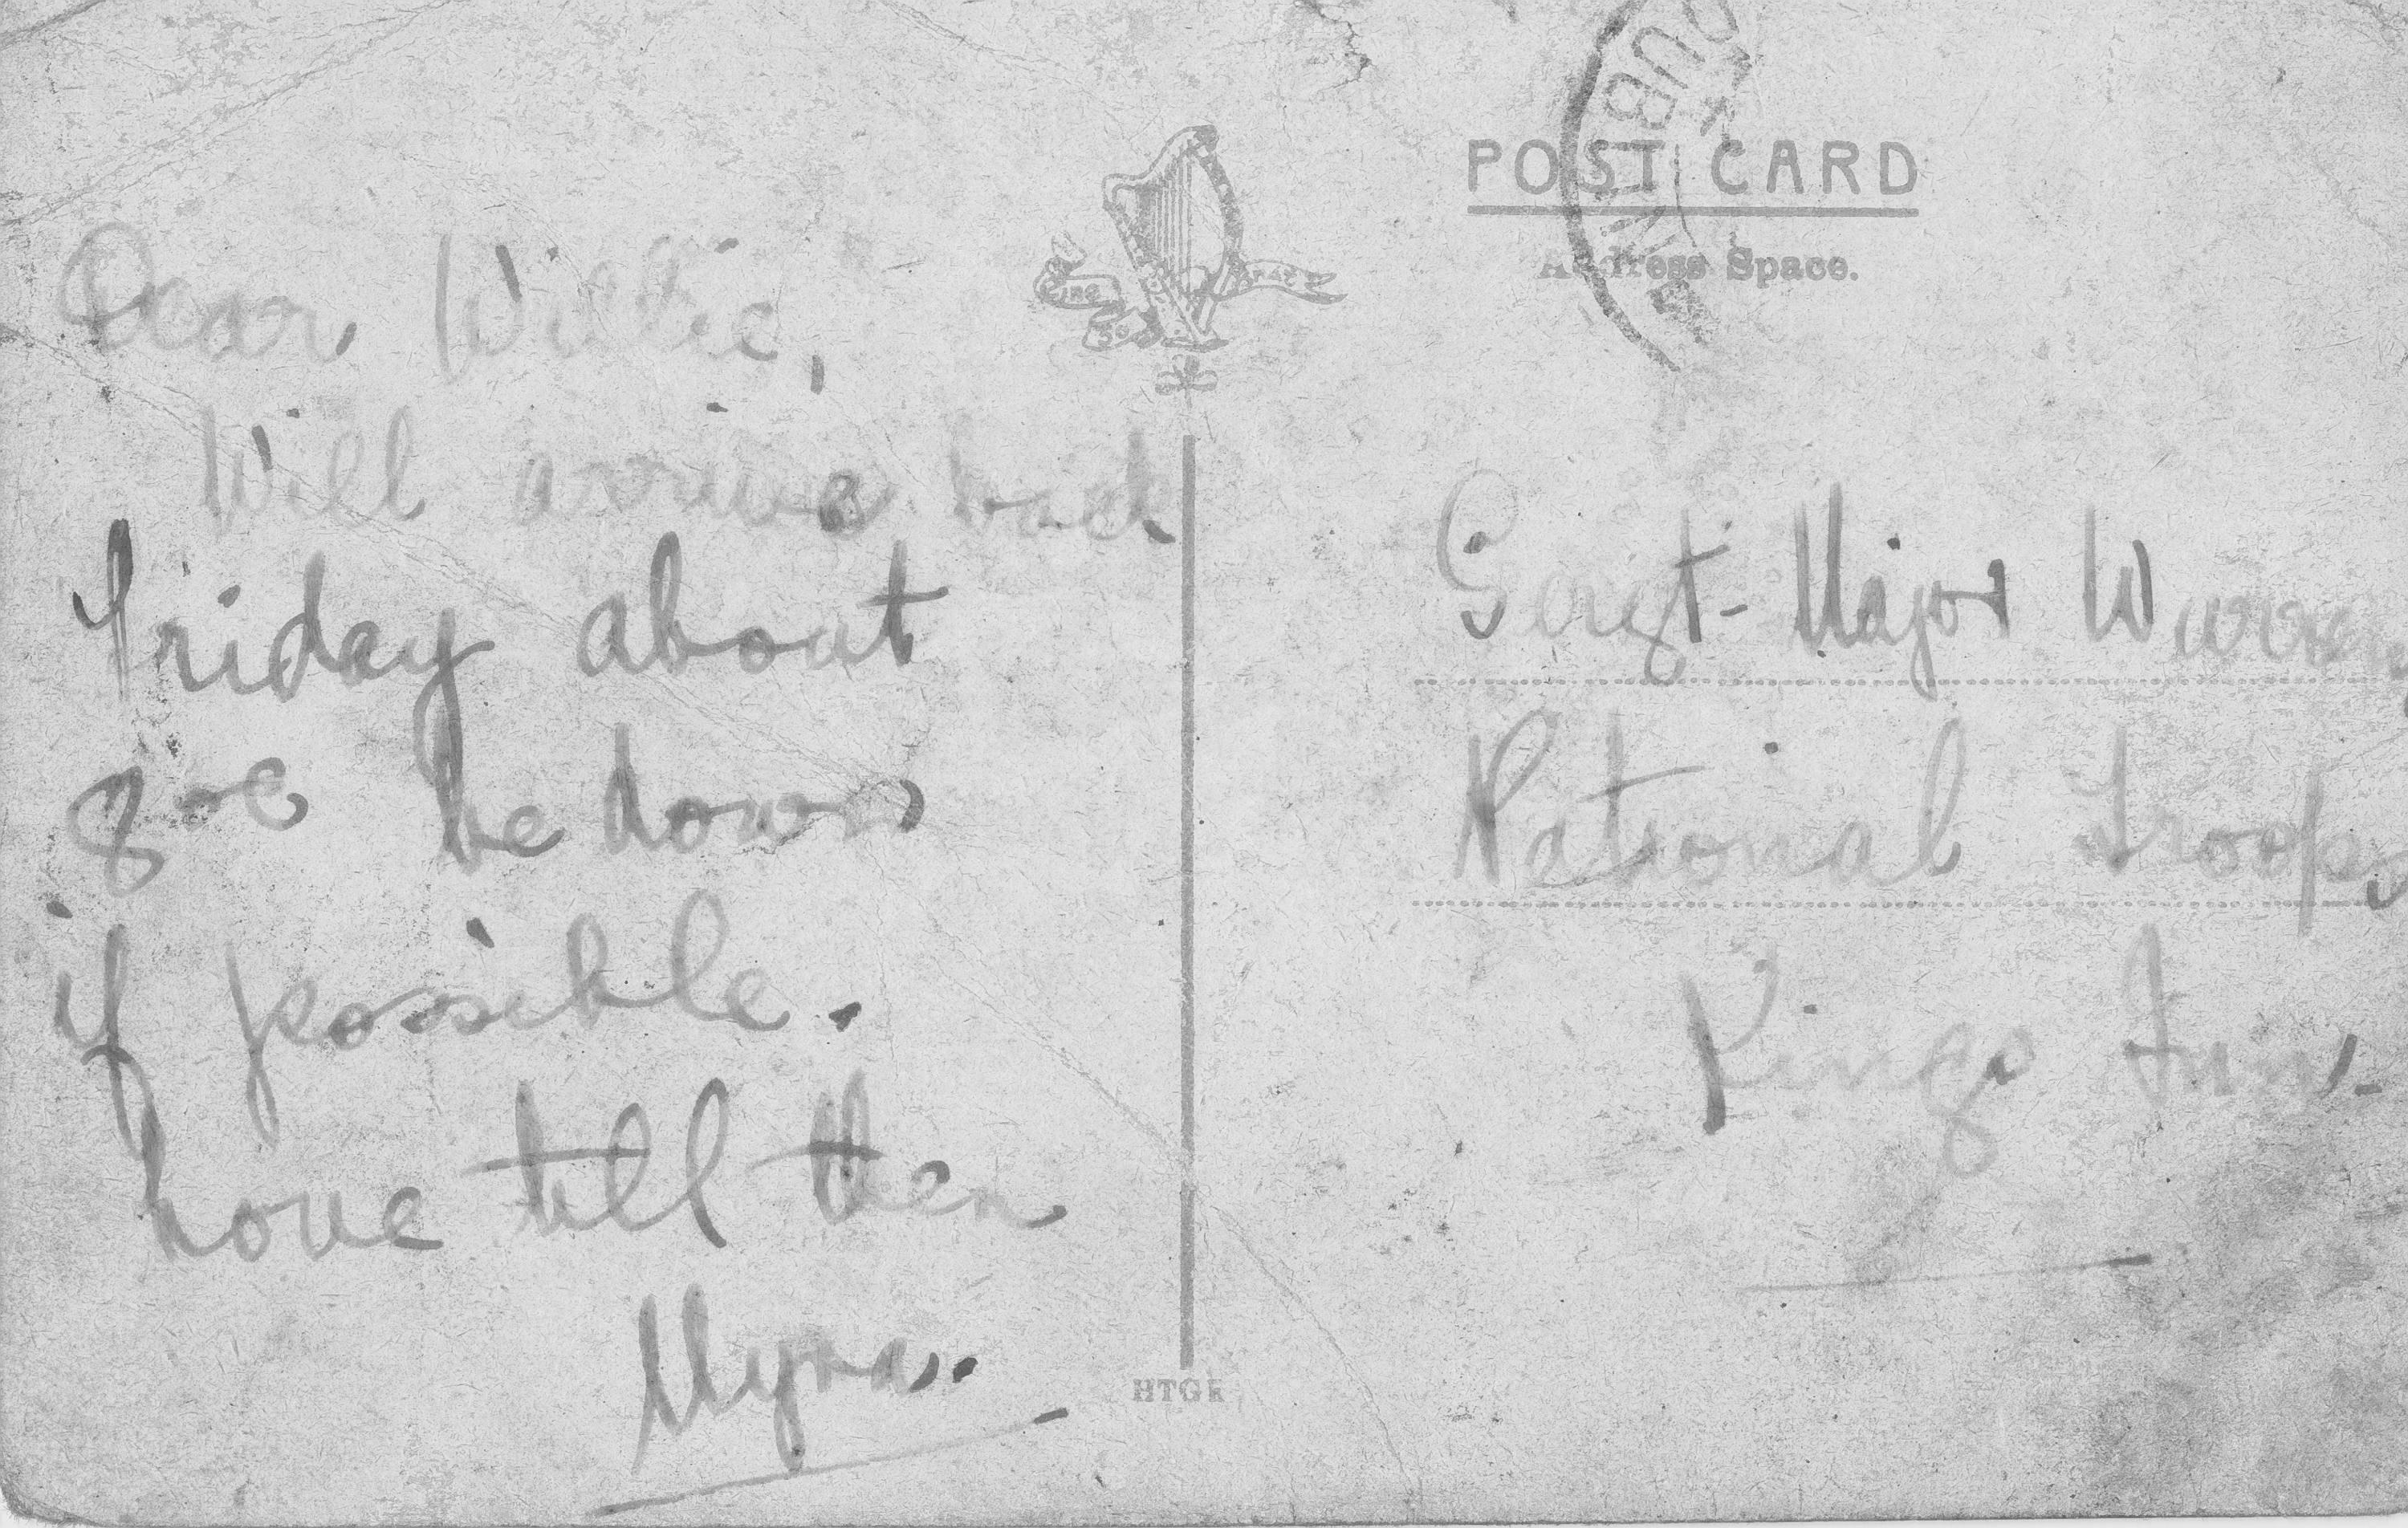 Dear Willie,
Will arrive back
Friday about
be down
if possible.
Love till then
Myra.
POST CARD
Address Space.
Sergt-Major
National Troops
Kings Inn.
DUBLIN
HTGR